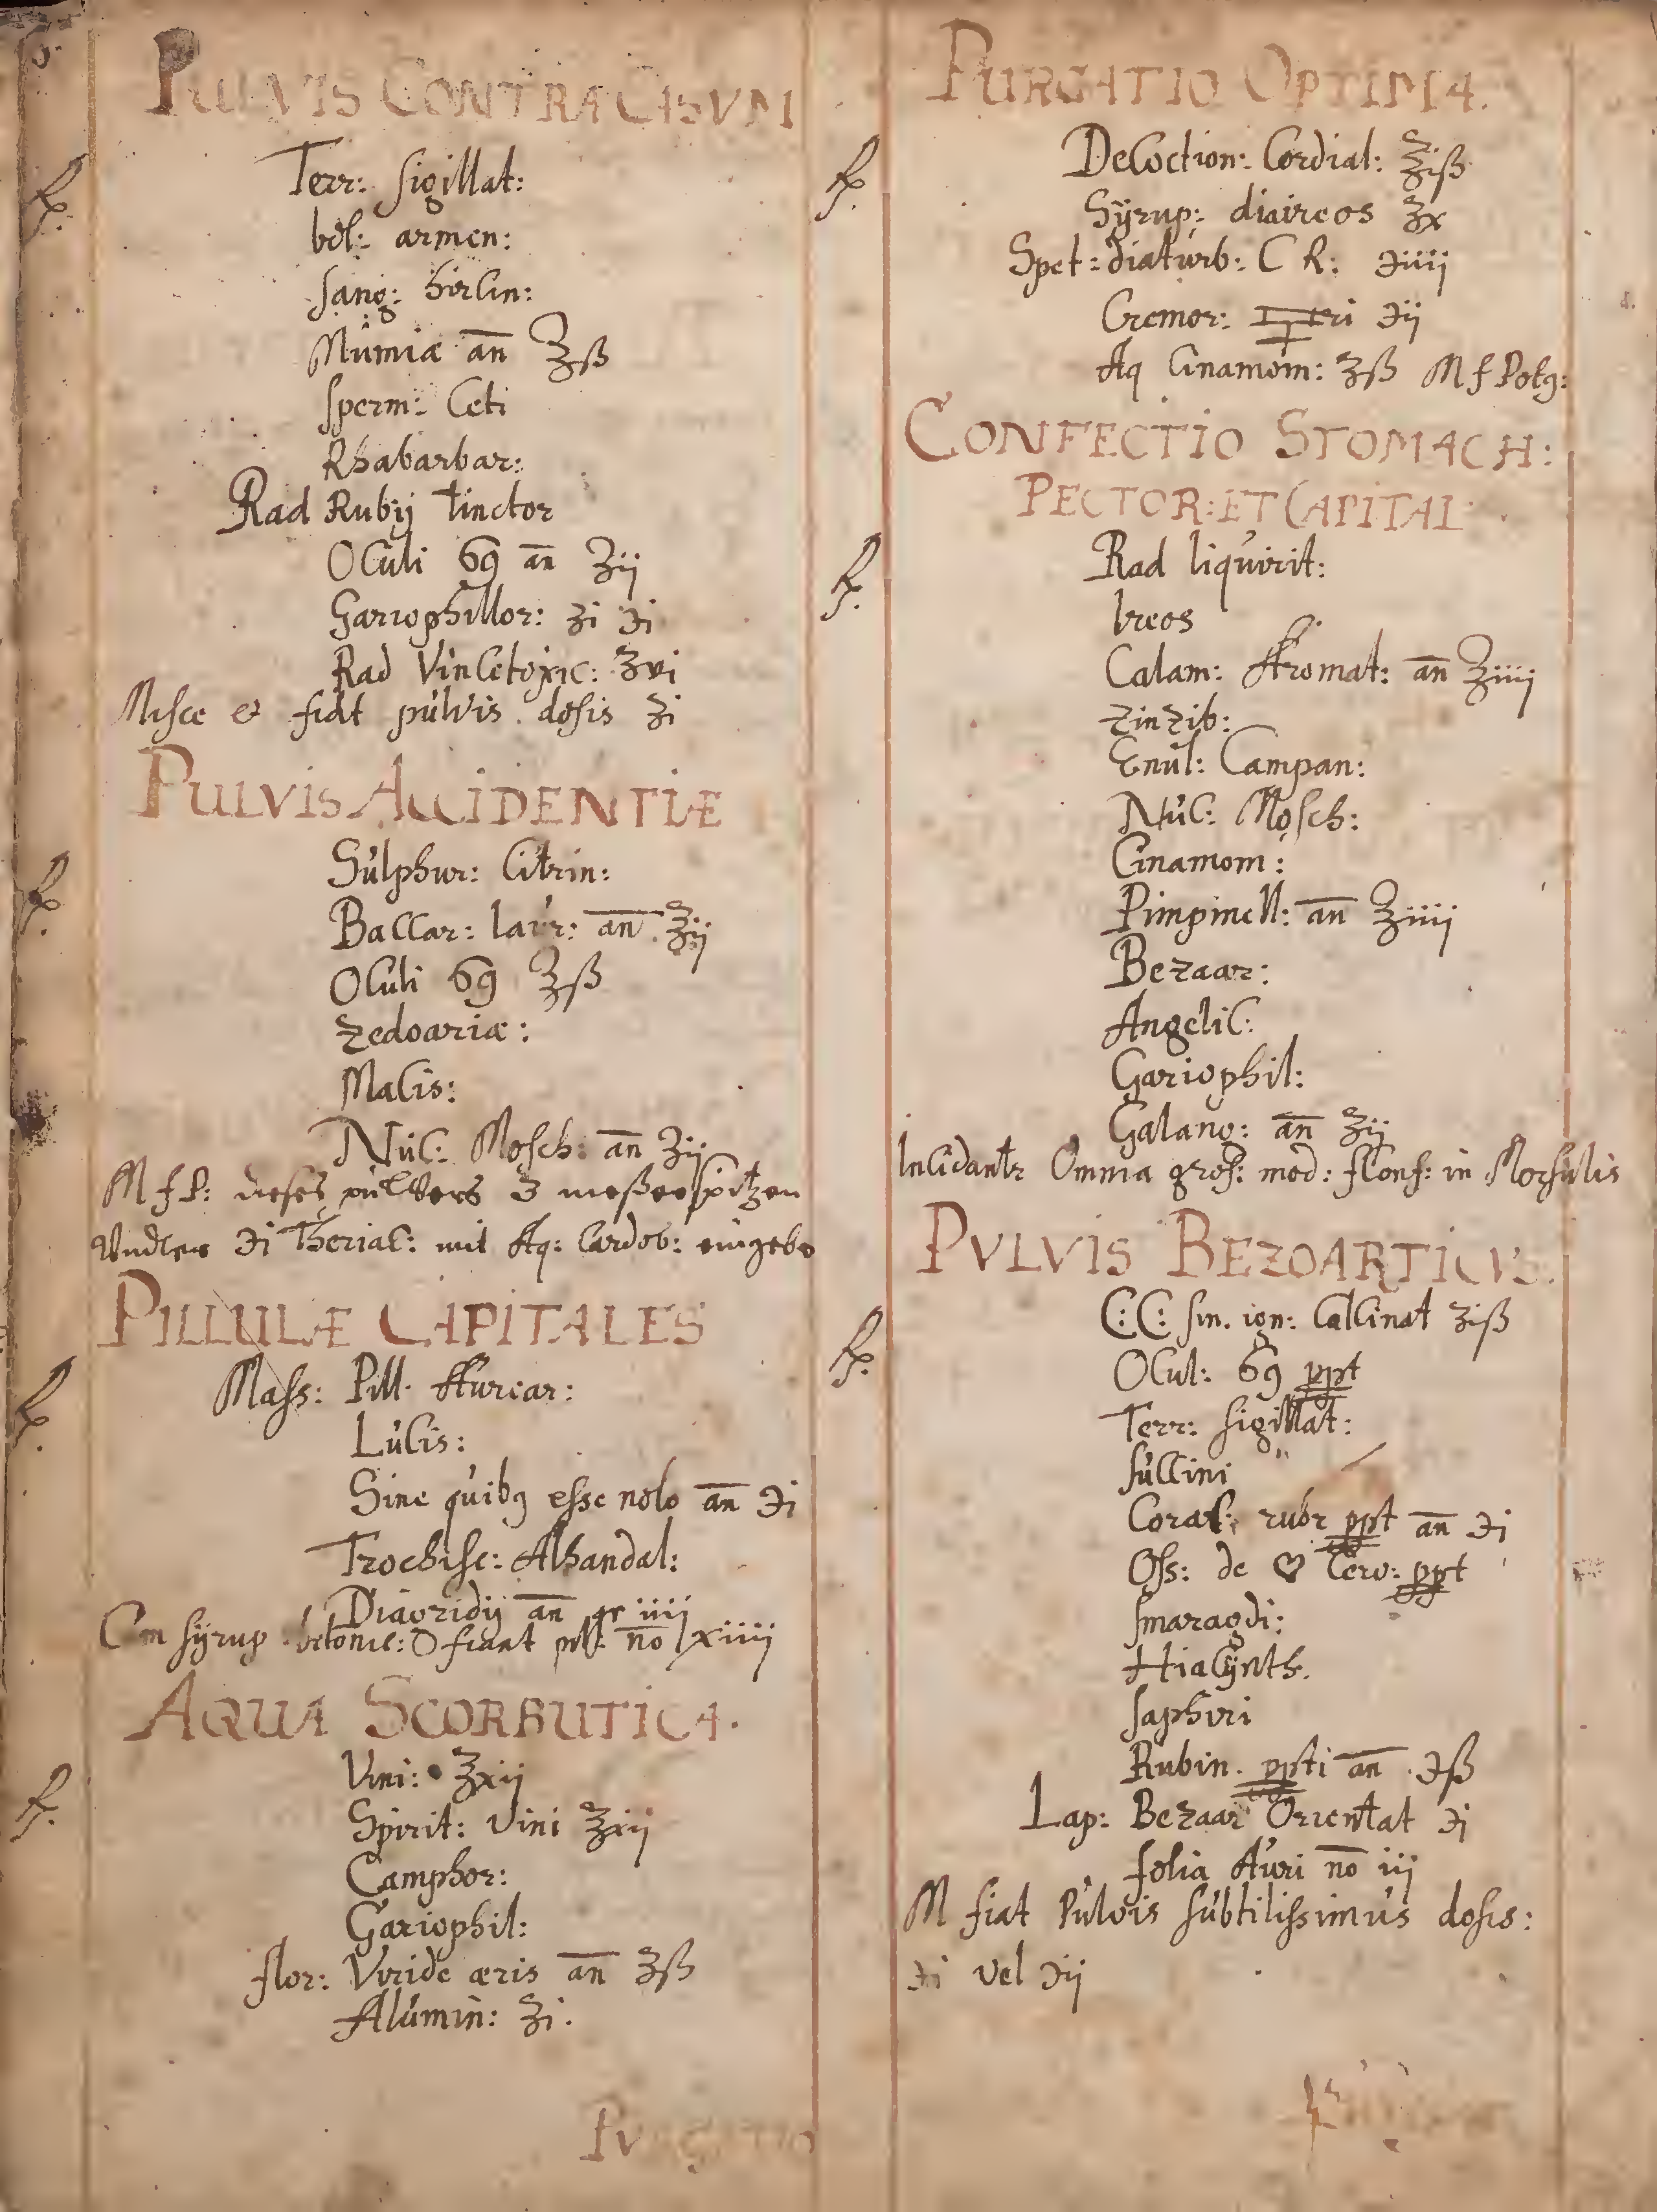 PULVIS CONTRA CASVM
℞.
Terr: sigillat:
bol: armen:
sang: hircin:
Mumiæ an̄ ℥ß
sperm: Ceti
Rhabarbar:
Rad Rubij tinctor
Oculi 69 an̄ ʒij
Gariophillor: ʒi ℈i
Rad Vincetoxic: ʒvi
Misce & fiat pulvis dosis ʒi
PULVIS ACCIDENTIÆ
℞.
Sulphur: Citrin:
Baccar: laur: an̄ ℥ij
Oculi 69 ℥ß
Zedoariæ:
Macis:
Nuc: Mosch: an̄ ʒij
M f P: dieses pulvers 3 messerspitzen
Undter ℈i Theriac: mit Aq: Cardob: eingebe
PILLULÆ CAPITALES
℞.
Mass: Pill. Aurear:
Lucis:
Sine quibꝫ esse nolo an̄ ℈i
Trochisc: Alhandal:
Diagridij an̄ gr iiii
Cm syrup betonic: fiant pill: no lxiiii
AQUA SCORBUTICA.
℞.
Vini: ℥xij
Spirit: Vini ℥xij
Camphor:
Gariophil:
flor: Viride æris an̄ ℥ß
Alumin: ʒi.
PURGATIO
PURGATIO OPTIMA.
℞.
Decoction: Cordial: ℥iß
Syrup: diaireos ℥x
Spet: diaturb: C R: ℈iiij
Cremor: ri ℈ij
Aq Cinamom: ℥ß M f Potg:
CONFECTIO STOMACH:
PECTOR: ET CAPITAL
℞.
Rad liquirit:
Ireos
Calam: Aromat: an̄ ʒiiij
Zinzib:
Enul: Campan:
Nuc: Mosch:
Cinamom:
Pimpinell: an̄ ʒiiij
Bezaar:
Angelic:
Gariophil:
Galang: an̄ ʒij
Incidantr Omnia gross: mod: f Conf: in Morsulis
PVLVIS BEZOARTICVS.
℞.
C: C: sin. ign: Calcinat ʒiß
Ocul: 69 ppt
Terr: sigillat:
succini
Coral: rubr ppt an̄ ℈i
Oss: de ♡ Cerv: ppt
smaragdi:
Hiacÿnth.
saphiri
Rubin. ppti an̄ ℈ß
Lap: Bezaar Orientat ℈i
folia Auri no iij
M fiat Pulvis subtilissimus dosis:
℈i vel ℈ij